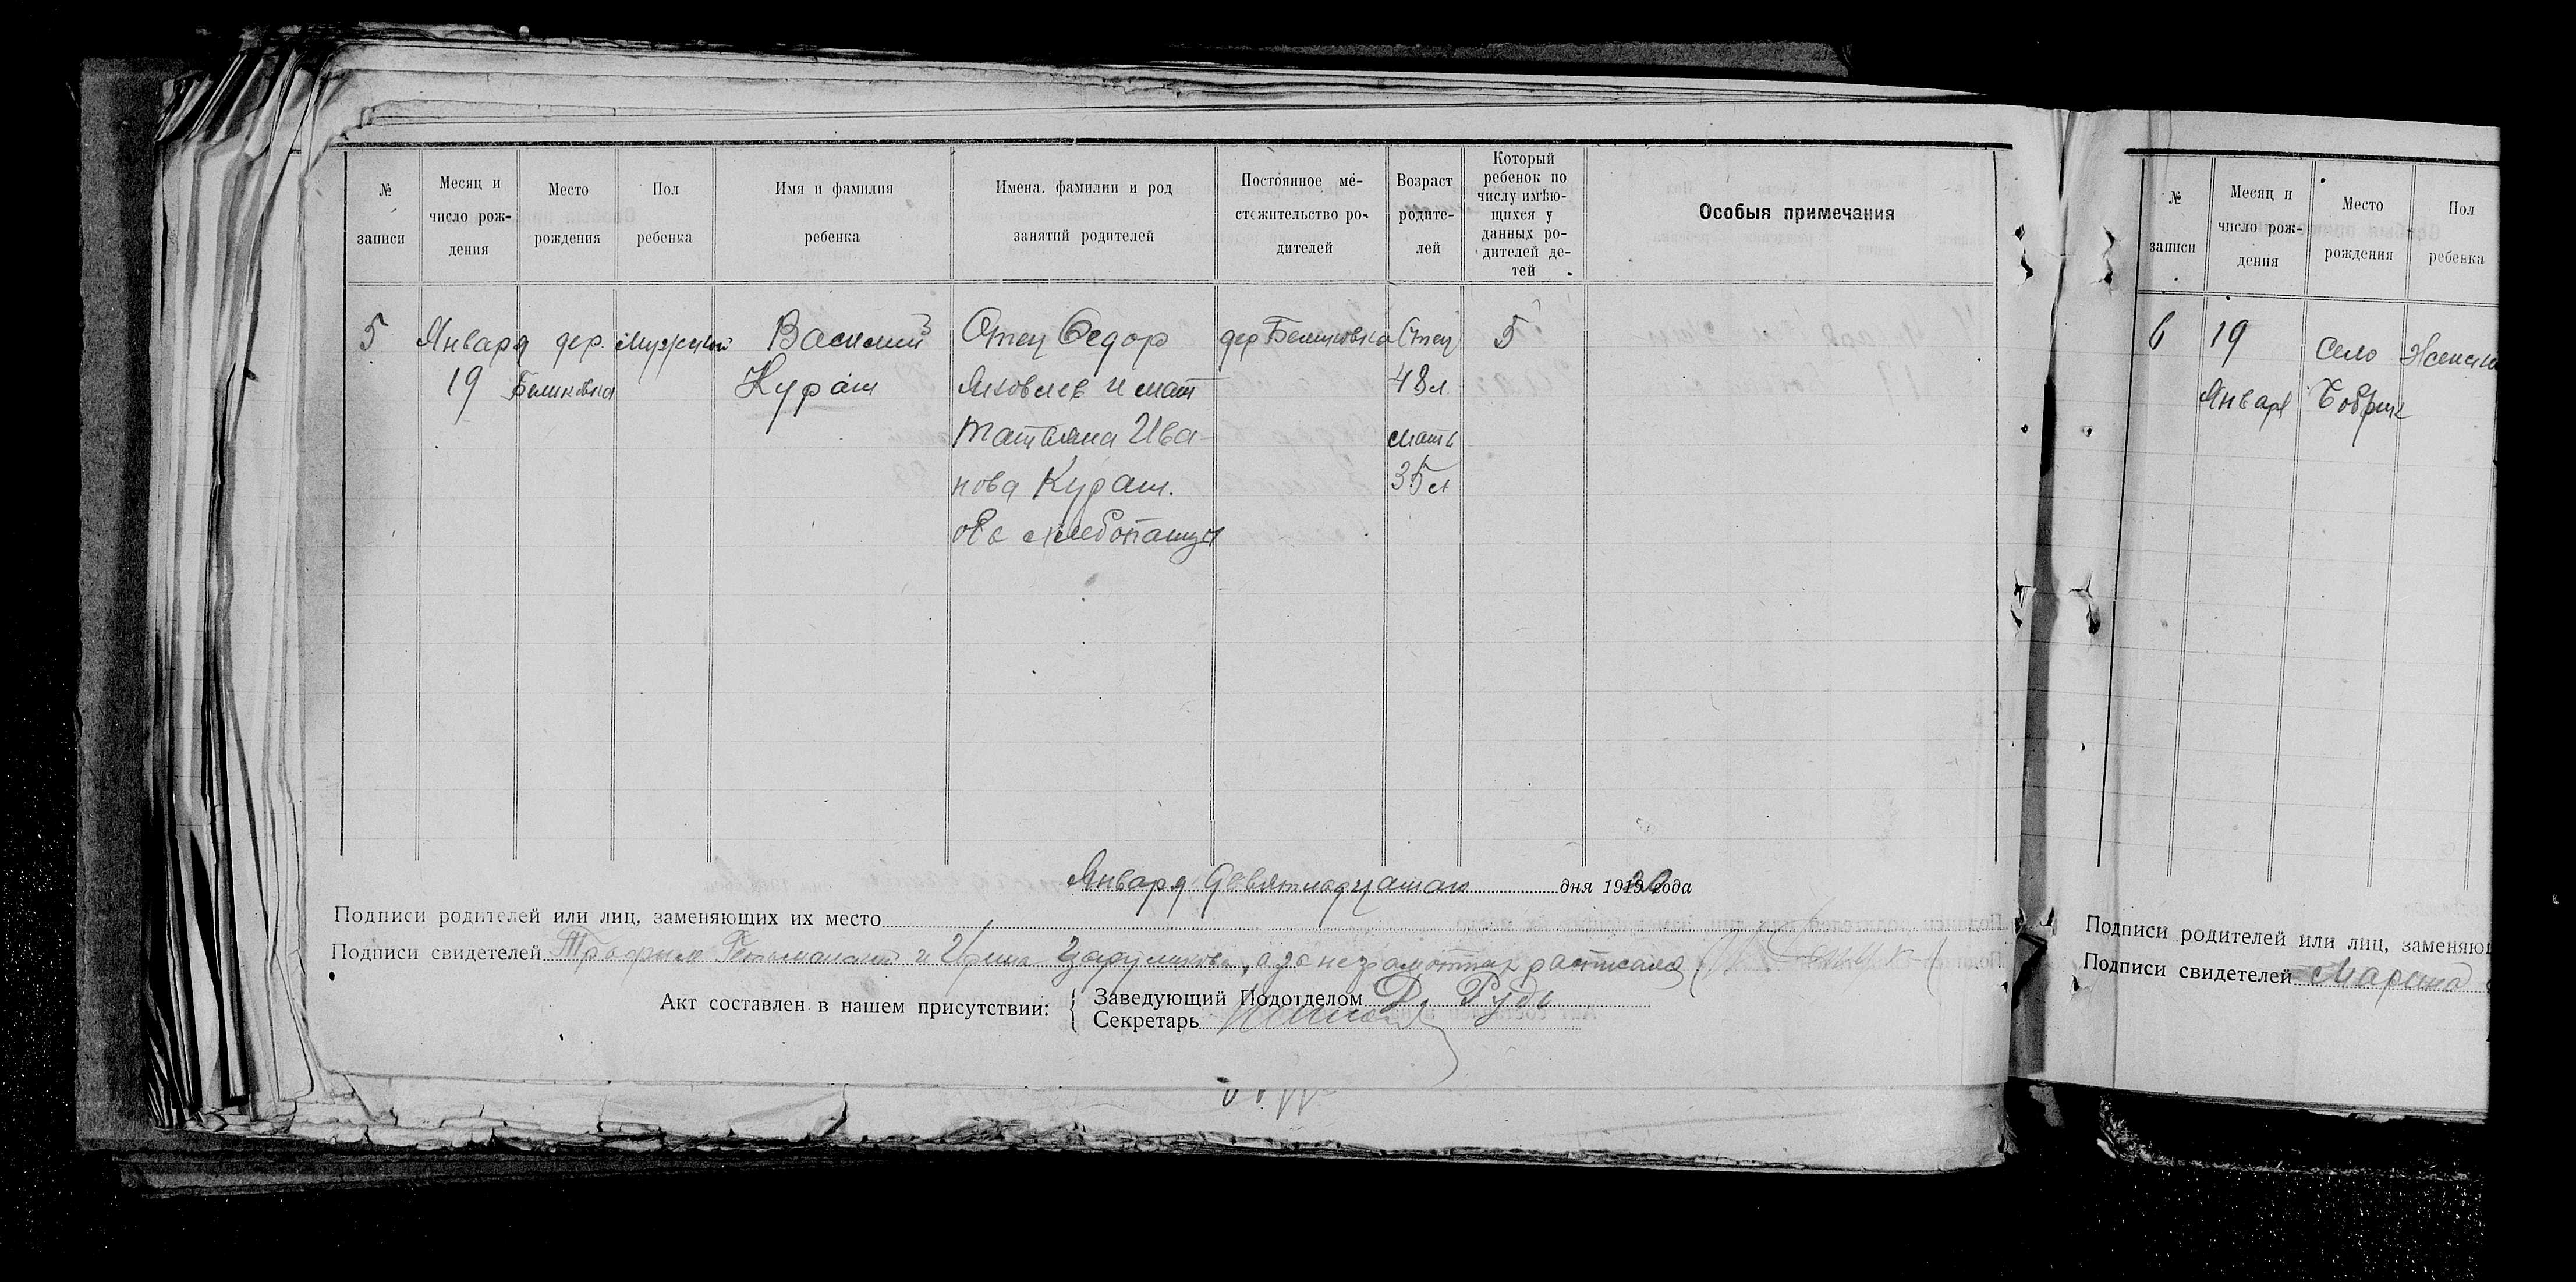 № записи
Месяц и число рож-дения
Место рождения
Пол ребенка
Имя и фамилия ребенка
Имена. фамилии и род занятий родителей
Постоянное ме-стожительство ро-дителей
Возраст родите-лей
Который ребенок по числу имѣю-щихся у данных ро-дителей де-тей
Особыя примечания
5
Января
19
дер.
Мужской
Василий
Кураш
Отец Федор
Яковлев и мат
Татьяна Ива
нова Кураш.
оба хлебопашцы
дер
Отец
48 л.
мать
35 л
5
Января девятнадцатаго дня 1920 года
Подписи родителей или лиц, заменяющих их место
Подписи свидетелей Трофим и а за неграмотных расписался
Акт составлен в нашем присутствии:
Заведующий Подотделом Д. Рудь
Секретарь
№ записи
Месяц и число рож-дения
Место рождения
Пол ребенка
6
19
Января
Село
Бобрик
Женски
Подписи родителей или лиц, заменяю
Подписи свидетелей Марина